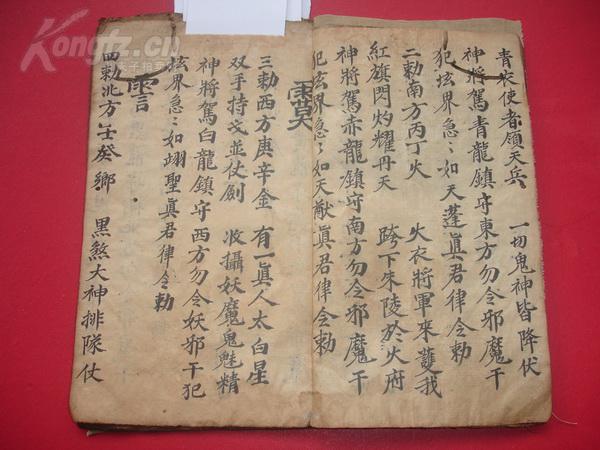 青衣使者領天兵　一切鬼神皆降伏
神將駕青龍鎮守東方勿令邪魔干
犯垓界急〻如天蓬真君律令勅
二勅南方丙丁火　火衣將軍來護我
紅旗閃灼耀丹天　跨下朱陵於火府
神將駕赤龍鎮守南方勿令邪魔干
犯垓界急〻如天猷眞君律令勅
三勅西方庚辛金　有一眞人太白星
双手持戈並仗劍　收攝妖魔鬼魅精
神將駕白龍鎮守西方勿令妖邪干犯
垓界急〻如翊聖眞君律令勅
四勅北方壬癸鄉　黑煞大神排隊仗
Kongfz.com